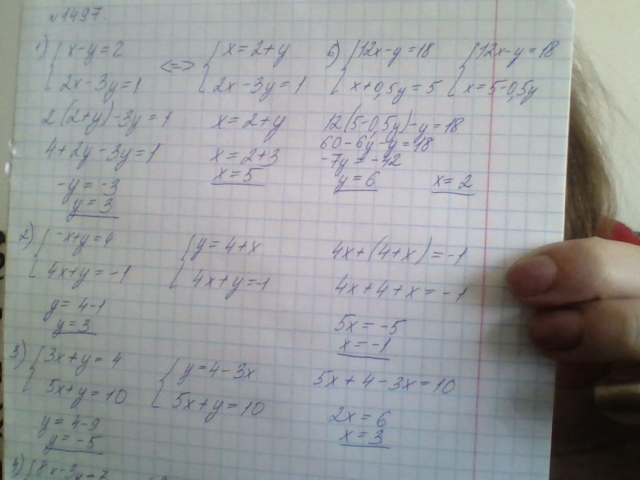 №1497
1) { x-y=2
2x-3y=1
<=> { x=2+y
2x-3y=1
2(2+y)-3y=1
4+2y-3y=1
-y=-3
y=3
x=2+y
x=2+3
x=5
6) { 12x-y=18
x+0,5y=5
{ 12x-y=18
x=5-0,5y
12(5-0,5y)-y=18
60-6y-y=18
-7y=-42
y=6
x=2
2) { -x+y=4
4x+y=-1
{ y=4+x
4x+y=-1
4x+(4+x)=-1
4x+4+x=-1
5x=-5
x=-1
y=4-1
y=3
3) { 3x+y=4
5x+y=10
{ y=4-3x
5x+y=10
5x+4-3x=10
2x=6
x=3
y=4-9
y=-5
4) {